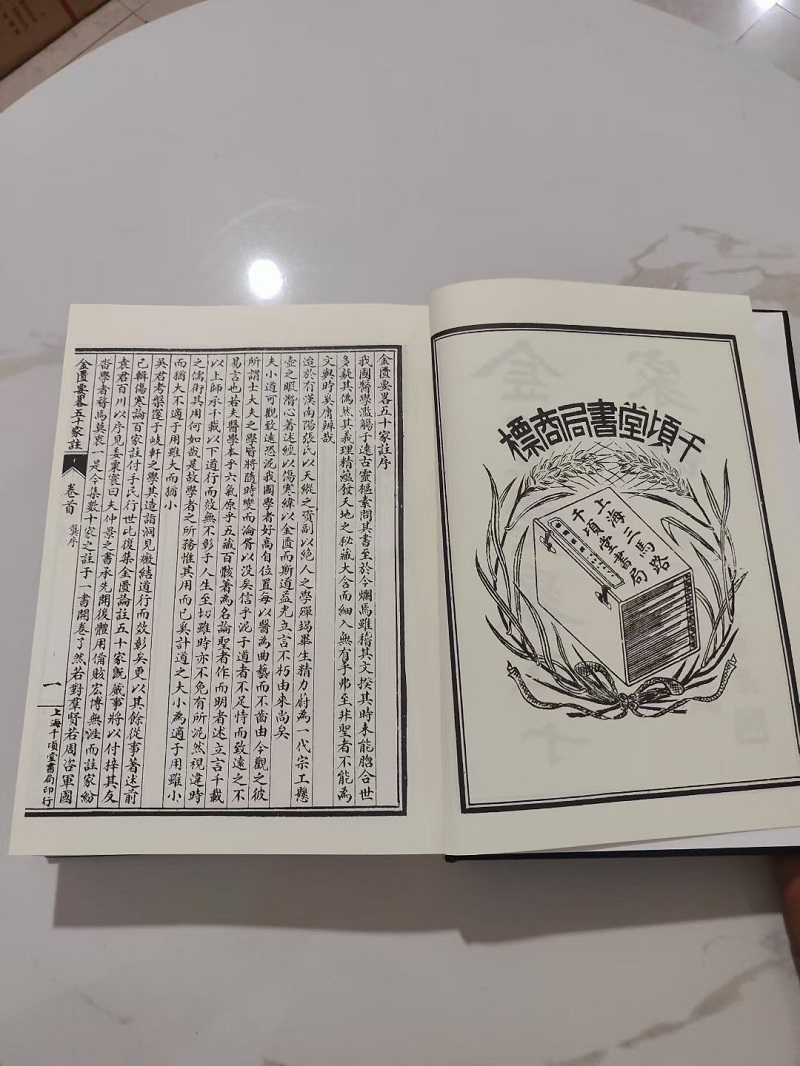 千頃堂書局商標
上海三馬路
千頃堂書局
金匱要畧五十家註序
我國醫學濫觴于遠古靈樞素問其書至於今爛焉雖稽其文揆其時未能脗合世
多疑其僞然其義理精蘊發天地之秘藏大含而細入無有乖弗至非聖者不能為
文與時奚庸辨哉
迨於有漢南陽張氏以天縱之資副以絶人之學殫竭畢生精力蔚為一代宗工懸
壺之暇潛心著述經以傷寒緯以金匱而斯道益光立言不朽由來尚矣
夫小道可觀致遠恐泥我國學者好高自位置每以醫為曲藝而不齒由今觀之彼
所謂士大夫之學皆將隨時變而淪胥以没矣信乎泥于道者不足恃而致遠之不
易言也若夫醫學本乎六氣原乎五藏百骸著為名論聖者作而明者述立言千載
以上師承千載以下道行而效無不彰于人生至切雖時亦不免有所汦然視違時
之儒術其用何如哉是故學者之所務惟其用而已奚計道之大小為適于用雖小
而猶大不適于用雖大而猶小
吳君考槃邃于岐軒之學其造詣洞見癥結道行而效彰矣更以其餘從事著述前
已輯傷寒論百家註付手民行世比復集金匱論註五十家旣蕆事將以付梓其友
袁君百川以序見委秉寰曰夫仲景之書承先開後體用備賅宏博無涯而註家紛
沓學者瞀焉莫衷一是今集數十家之註于一書開卷了然若對羣賢若周咨軍國
金匱要畧五十家註
卷首
龔序
一
上海千頃堂書局印行